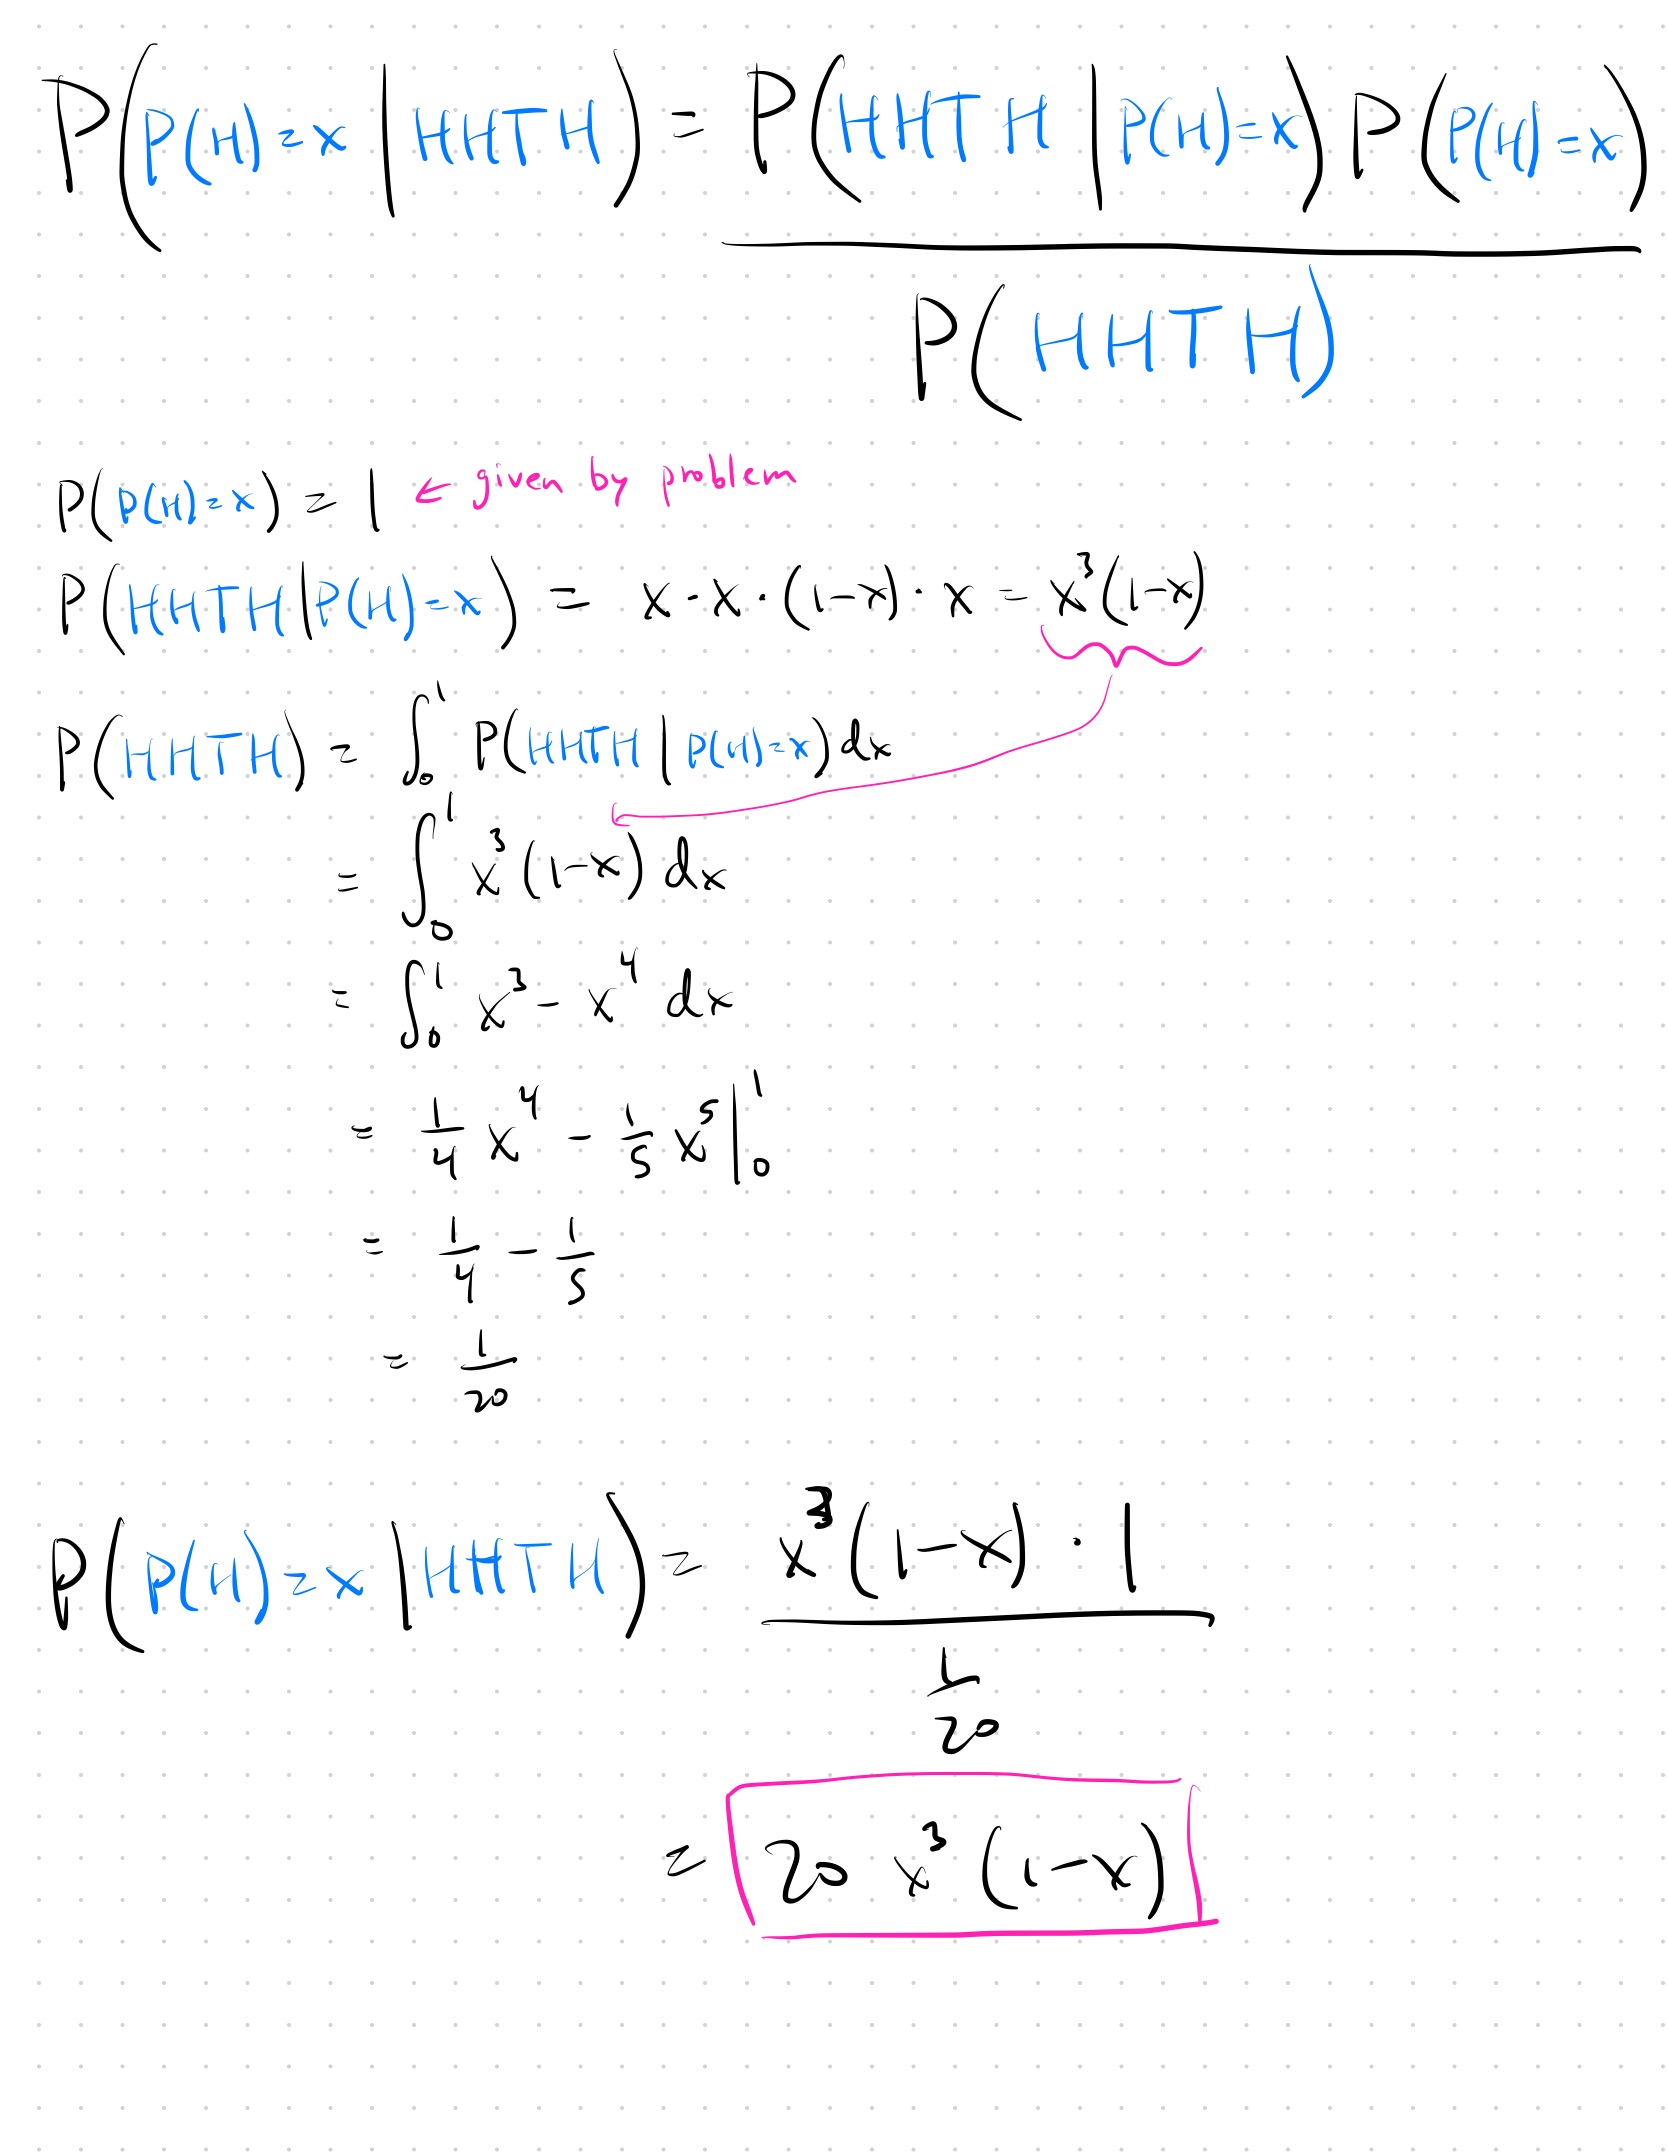 P(P(H)=x | HHTH) = P(HHTH | P(H)=x) P(P(H)=x)
P(HHTH)
P(P(H)=x) = 1 ← given by problem
P(HHTH|P(H)=x) = x · x · (1-x) · x = x³(1-x)
P(HHTH) = ∫₀¹ P(HHTH | P(H)=x) dx
= ∫₀¹ x³(1-x) dx
= ∫₀¹ x³ - x⁴ dx
= 1/4 x⁴ - 1/5 x⁵ |₀¹
= 1/4 - 1/5
= 1/20
P(P(H)=x | HHTH) = x³(1-x) · 1
1/20
= 20 x³ (1-x)